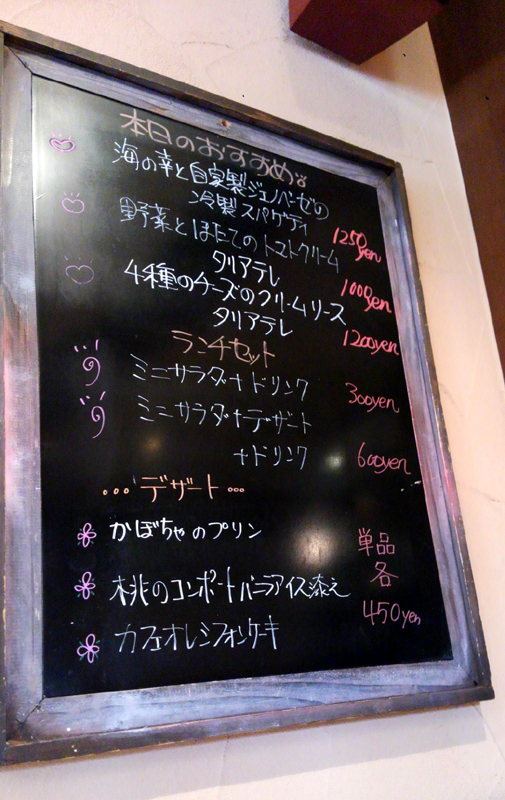 本日のおすすめ
海の幸と自家製ジェノベーゼの
冷製スパゲティ
1250yen
野菜とほたてのトマトクリーム
タリアテレ
1000yen
4種のチーズのクリームソース
タリアテレ
1200yen
ランチセット
ミニサラダ+ドリンク
300yen
ミニサラダ+デザート
+ドリンク
600yen
...デザート...
かぼちゃのプリン
単品
各
桃のコンポートバニラアイス添え
450yen
カフェオレシフォンケーキ